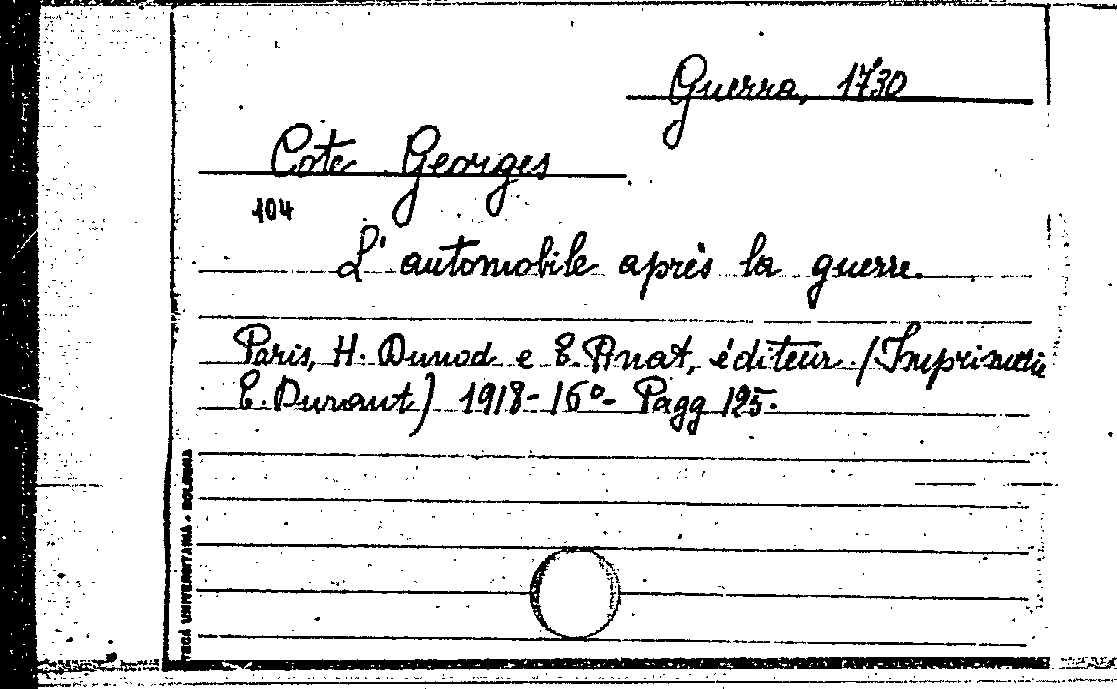 Guerra, 1730
Cote Georges
104
L'automobile après la guerre.
Paris, H. Dunod e E. Pinat, éditeur (Imprimerie
E. Durant) 1918-16º- Pagg 125.
TECA UNIVERSITARIA - BOLOGNA